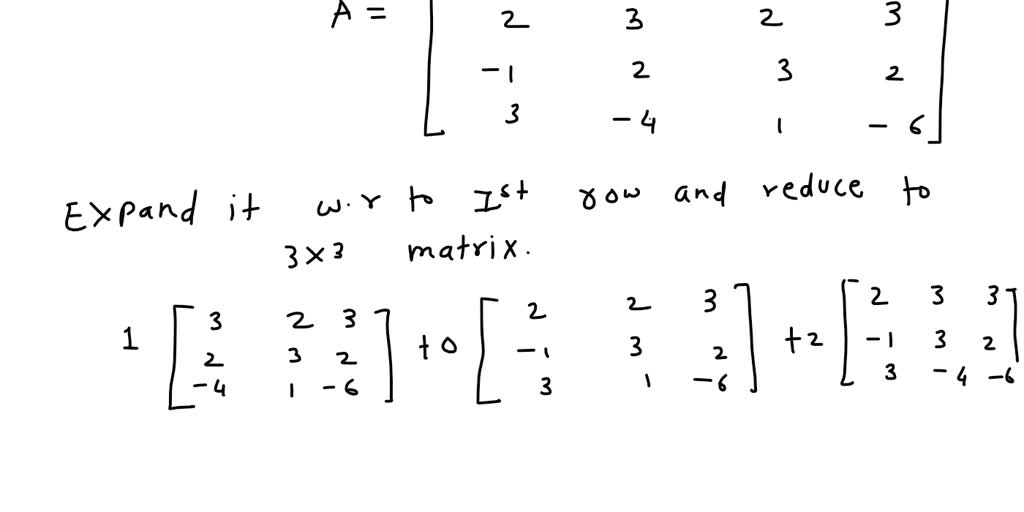 A =
2 3 2 3
-1 2 3 2
3 -4 1 -6
Expand it w.r to Ist row and reduce to
3×3 matrix.
1 [3 2 3] +0 [2 2 3] +2 [2 3 3]
[2 3 2] [-1 3 2] [-1 3 2]
[-4 1 -6] [3 1 -6] [3 -4 -6]